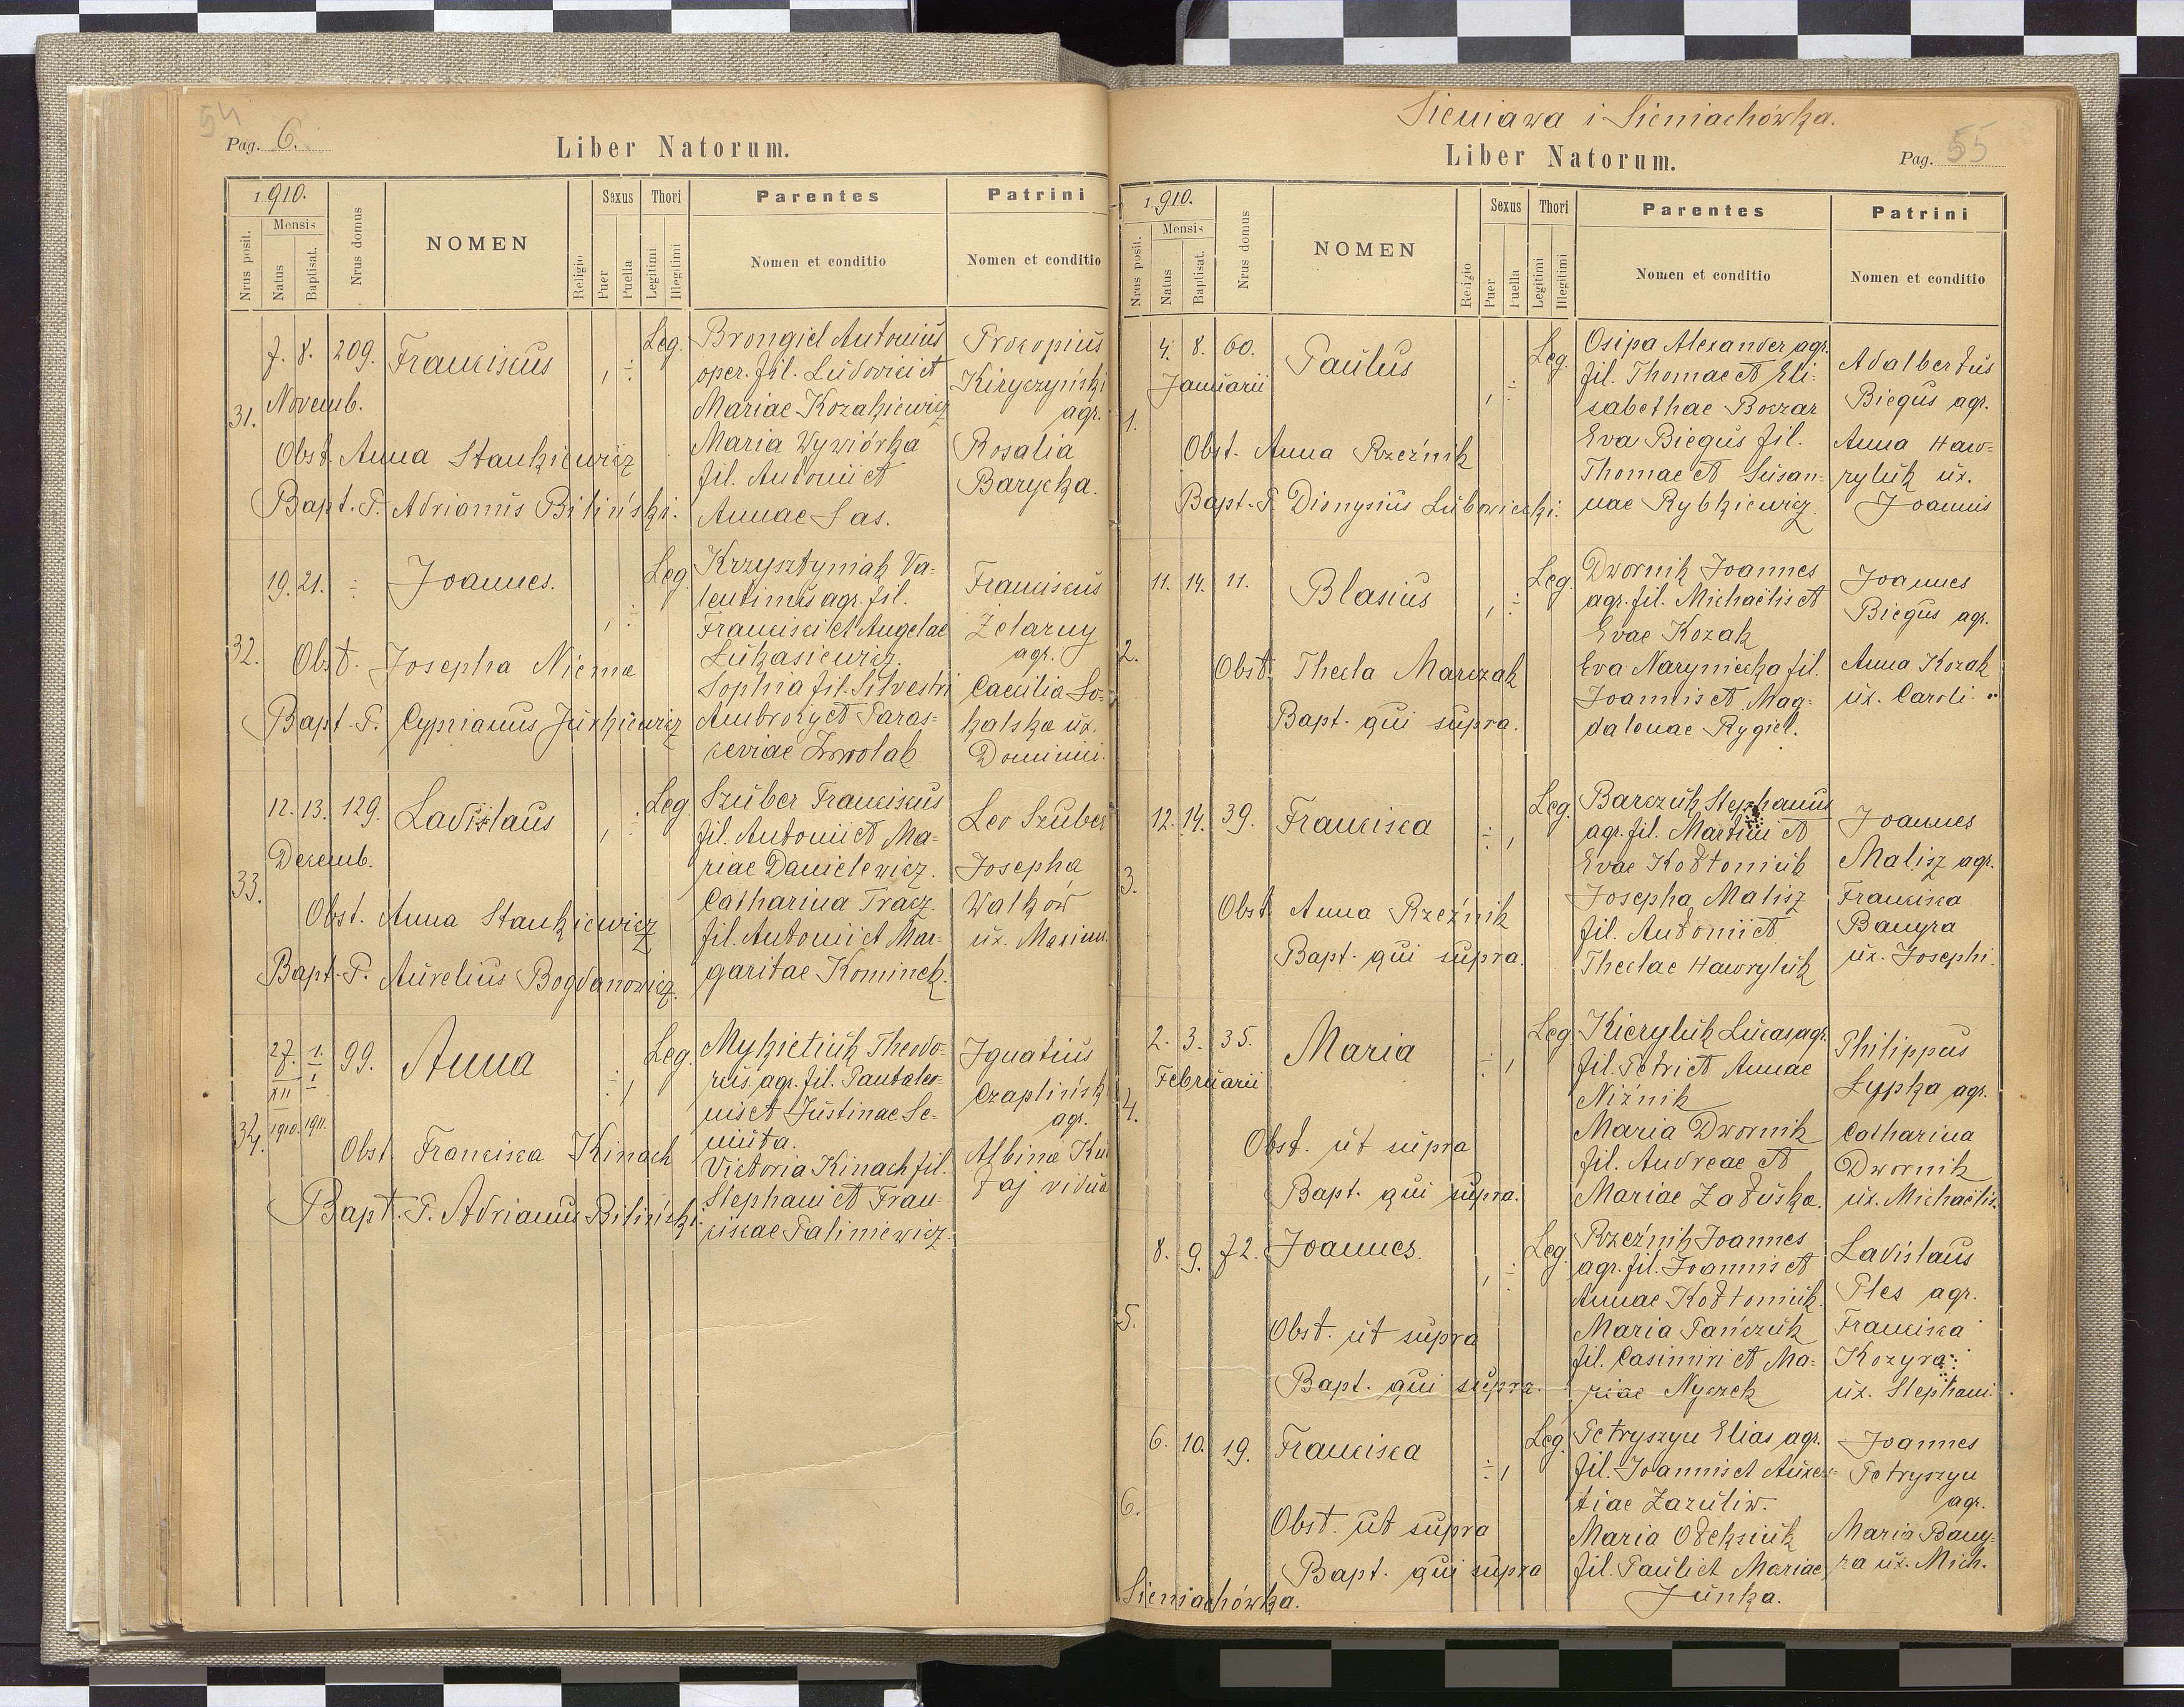 54
Pag. 6.
Liber Natorum.
1910.
Nrus posit.
Mensis
Natus
Baptisat.
Nrus domus
NOMEN
Religio
Sexus
Puer
Puella
Thori
Legitimi
Illegitimi
Parentes
Nomen et conditio
Patrini
Nomen et conditio
31.
7. 8. 209. Franciscus Leg.
Novemb.
Obst. Anna Stankiewicz
Bapt. P. Adrianus Biliński.
Brongiel Antonius
oper. fil. Ludovici et
Mariae Kozakiewicz
Maria Wywiórka
fil. Antonii et
Annae Sas.
Procopius
Kiryczyński
agr.
Rosalia
Barycka.
32.
19. 21. Joannes. Leg.
Obst. Josepha Niema
Bapt. P. Cyprianus Jurkiewicz
Krzysztyniak Va-
lentinus agr. fil.
Francisci et Angelae
Łukasiewicz.
Sophia fil. Silvestri
Ambroży et Paras-
ceviae
Franciscus
Zelarny
agr.
Caecilia So-
kalska ux.
Dominici.
33.
12. 13. 129. Ladislaus Leg.
Decemb.
Obst. Anna Stankiewicz
Bapt. P. Aurelius Bogdanowicz.
Szuber Franciscus
fil. Antonii et Ma-
riae Danielewicz.
Catharina Tracz.
fil. Antonii et Mar-
garitae Kominek.
Leo Szuber
Josepha
Walków
ux. Maximi
34.
27. 1. 99. Anna Leg.
XII I
1910. 1911.
Obst. Francisca Kinach
Bapt. P. Adrianus Biliński.
Mykietiuk Theodo-
rus, agr. fil. Pantaleo-
nis et Justinae Se-
niuta.
Victoria Kinach fil.
Stephani et Fran-
ciscae Paliniewicz.
Ignatius
Czapliński
agr.
Albina Ku
taj vidua
Sieniawa i Sieniachówka.
Liber Natorum.
Pag. 55
1910.
Nrus posit.
Mensis
Natus
Baptisat.
Nrus domus
NOMEN
Religio
Sexus
Puer
Puella
Thori
Legitimi
Illegitimi
Parentes
Nomen et conditio
Patrini
Nomen et conditio
1.
4. 8. 60. Paulus Leg.
Januarii
Obst. Anna Rzeźnik
Bapt. P. Dionysius Lubowiecki.
Osipa Alexander agr.
fil. Thomae et Eli-
sabethae Boczar
Eva Biegus fil.
Thomae et Susan-
nae Rybkiewicz.
Adalbertus
Biegus agr.
Anna Haw-
ryluk ux.
Joannis
2.
11. 14. 11. Blasius Leg.
Obst. Thecla Marczak
Bapt. qui supra.
Dwornik Joannes
agr. fil. Michaëlis et
Evae Kozak
Eva Naryniecka fil.
Joannis et Mag-
dalenae Rygiel.
Joannes
Biegus agr.
Anna Kozak
ux. Caroli
3.
12. 14. 39. Francisca Leg.
Obst. Anna Rzeźnik
Bapt. qui supra.
Barczuk Stephanus
agr. fil. Martini et
Evae Kołtoniuk
Josepha Malisz
fil. Antonii et
Theclae Hawryluk
Joannes
Malisz agr.
Francisca
Banyra
ux. Josephi.
4.
2. 3. 35. Maria Leg.
Februarii
Obst. ut supra
Bapt. qui supra.
Kieryluk Lucas agr.
fil. Petri et Annae
Niżnik
Maria Dwornik
fil. Andreae et
Mariae Załuska.
Philippus
Łypka agr.
Catharina
Dwornik
ux. Michaëlis.
5.
8. 9. 72. Joannes. Leg.
Obst. ut supra
Bapt. qui supra.
Rzeźnik Joannes
agr. fil. Joannis et
Annae Kołtoniuk.
Maria Pańczuk
fil. Casimiri et Ma-
riae Nyczek
Ladislaus
Ples agr.
Francisca
Kozyra
ux. Stephani.
6.
6. 10. 19. Francisca Leg.
Obst. ut supra
Bapt. qui supra
Sieniachówka.
Petryszyn Elias agr.
fil. Joannis et Auxen-
tiae Zazuliw.
Maria Ołeksiuk
fil. Pauli et Mariae
Junka.
Joannes
Petryszyn
agr.
Maria Bany-
ra ux. Mich.